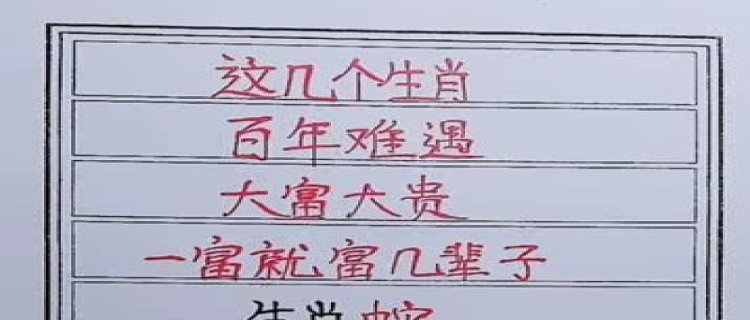 这几个生肖
百年难遇
大富大贵
一富就富几辈子
生肖蛇